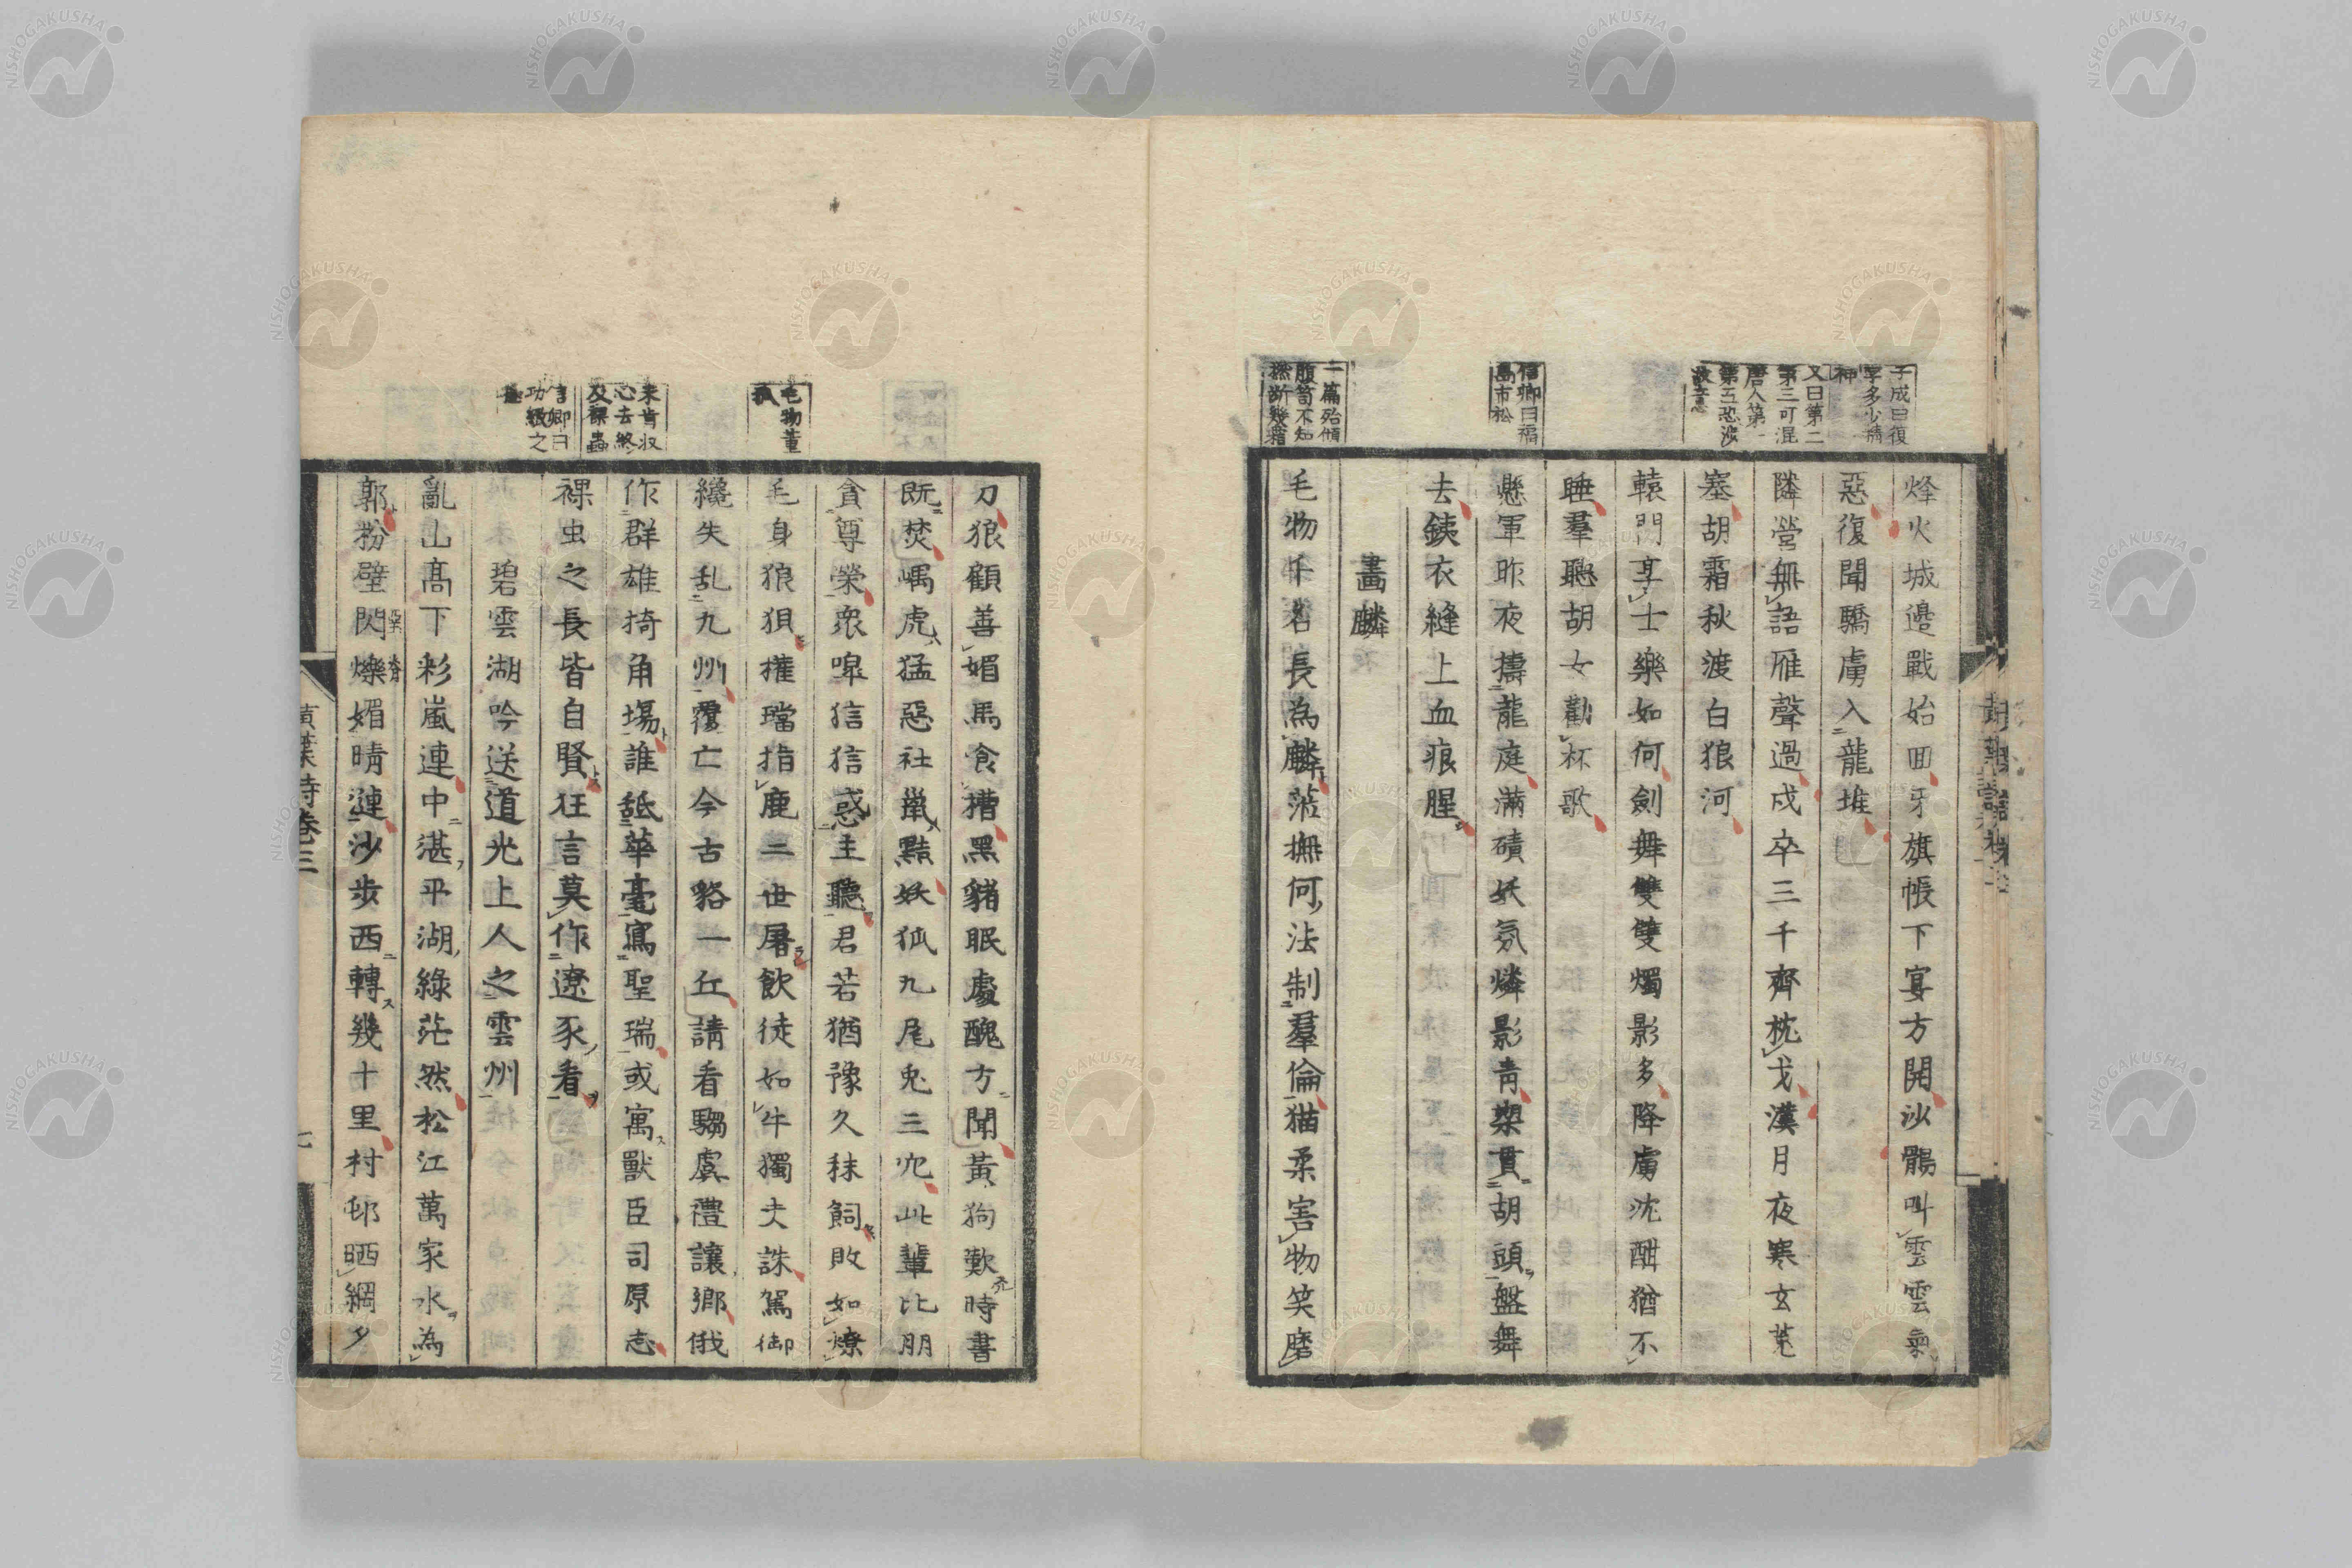 子成曰復
字多少精
神
又曰第二
第三可混
唐人第一
第五恐涉
故意
烽火城邊戰始回牙旗帳下宴方開沙鶻叫雲雲氣
惡復聞驕虜入龍堆
隣營無語雁聲過戍卒三千齊枕戈漢月夜寒玄菟
塞胡霜秋渡白狼河
轅門享士樂如何劍舞雙雙燭影多降虜沈酣猶不
睡羣聽胡女勸杯歌
信卿曰福
島市松
懸軍昨夜擣龍庭滿磧妖氛燐影青槊貫胡頭盤舞
去鉄衣縫上血痕腥
畫麟
一篇殆傾
腹笥不知
撚断幾霜
毛物千名長為麟蒞撫何法制羣倫猫柔害物笑磨
刀狼顧善媚馬食槽黑豬眠處醜方聞黃狗歎時書
既焚嵎虎猛惡社鼠黠妖狐九尾兎三穴此輩比朋
貪尊榮衆嘷狺狺惑主聽君若猶豫久秣飼敗如燎
毛物董
狐
毛身狼狽摧璫指鹿二世屠飲徒如牛獨夫誅駕御
纔失乱九州覆亡今古貉一丘請看騶虞禮讓鄉俄
来肯収
心去終
及裸蟲
作群雄掎角塲誰舐華毫寫聖瑞或寓獸臣司原志
裸虫之長皆自賢狂言莫作遼豕看
信卿曰
功緻之
極
碧雲湖吟送道光上人之雲州
亂山高下彩嵐連中湛平湖綠茫然松江萬家水為
郭粉壁閃爍媚晴漣沙步西轉幾十里村邨晒網夕
黃葉詩卷三
七